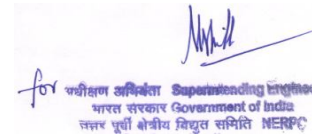 for अधीक्षण अभियंता Superintending Enginee
भारत सरकार Government of India
उत्तर पूर्वी क्षेत्रीय विद्युत समिति NERPC